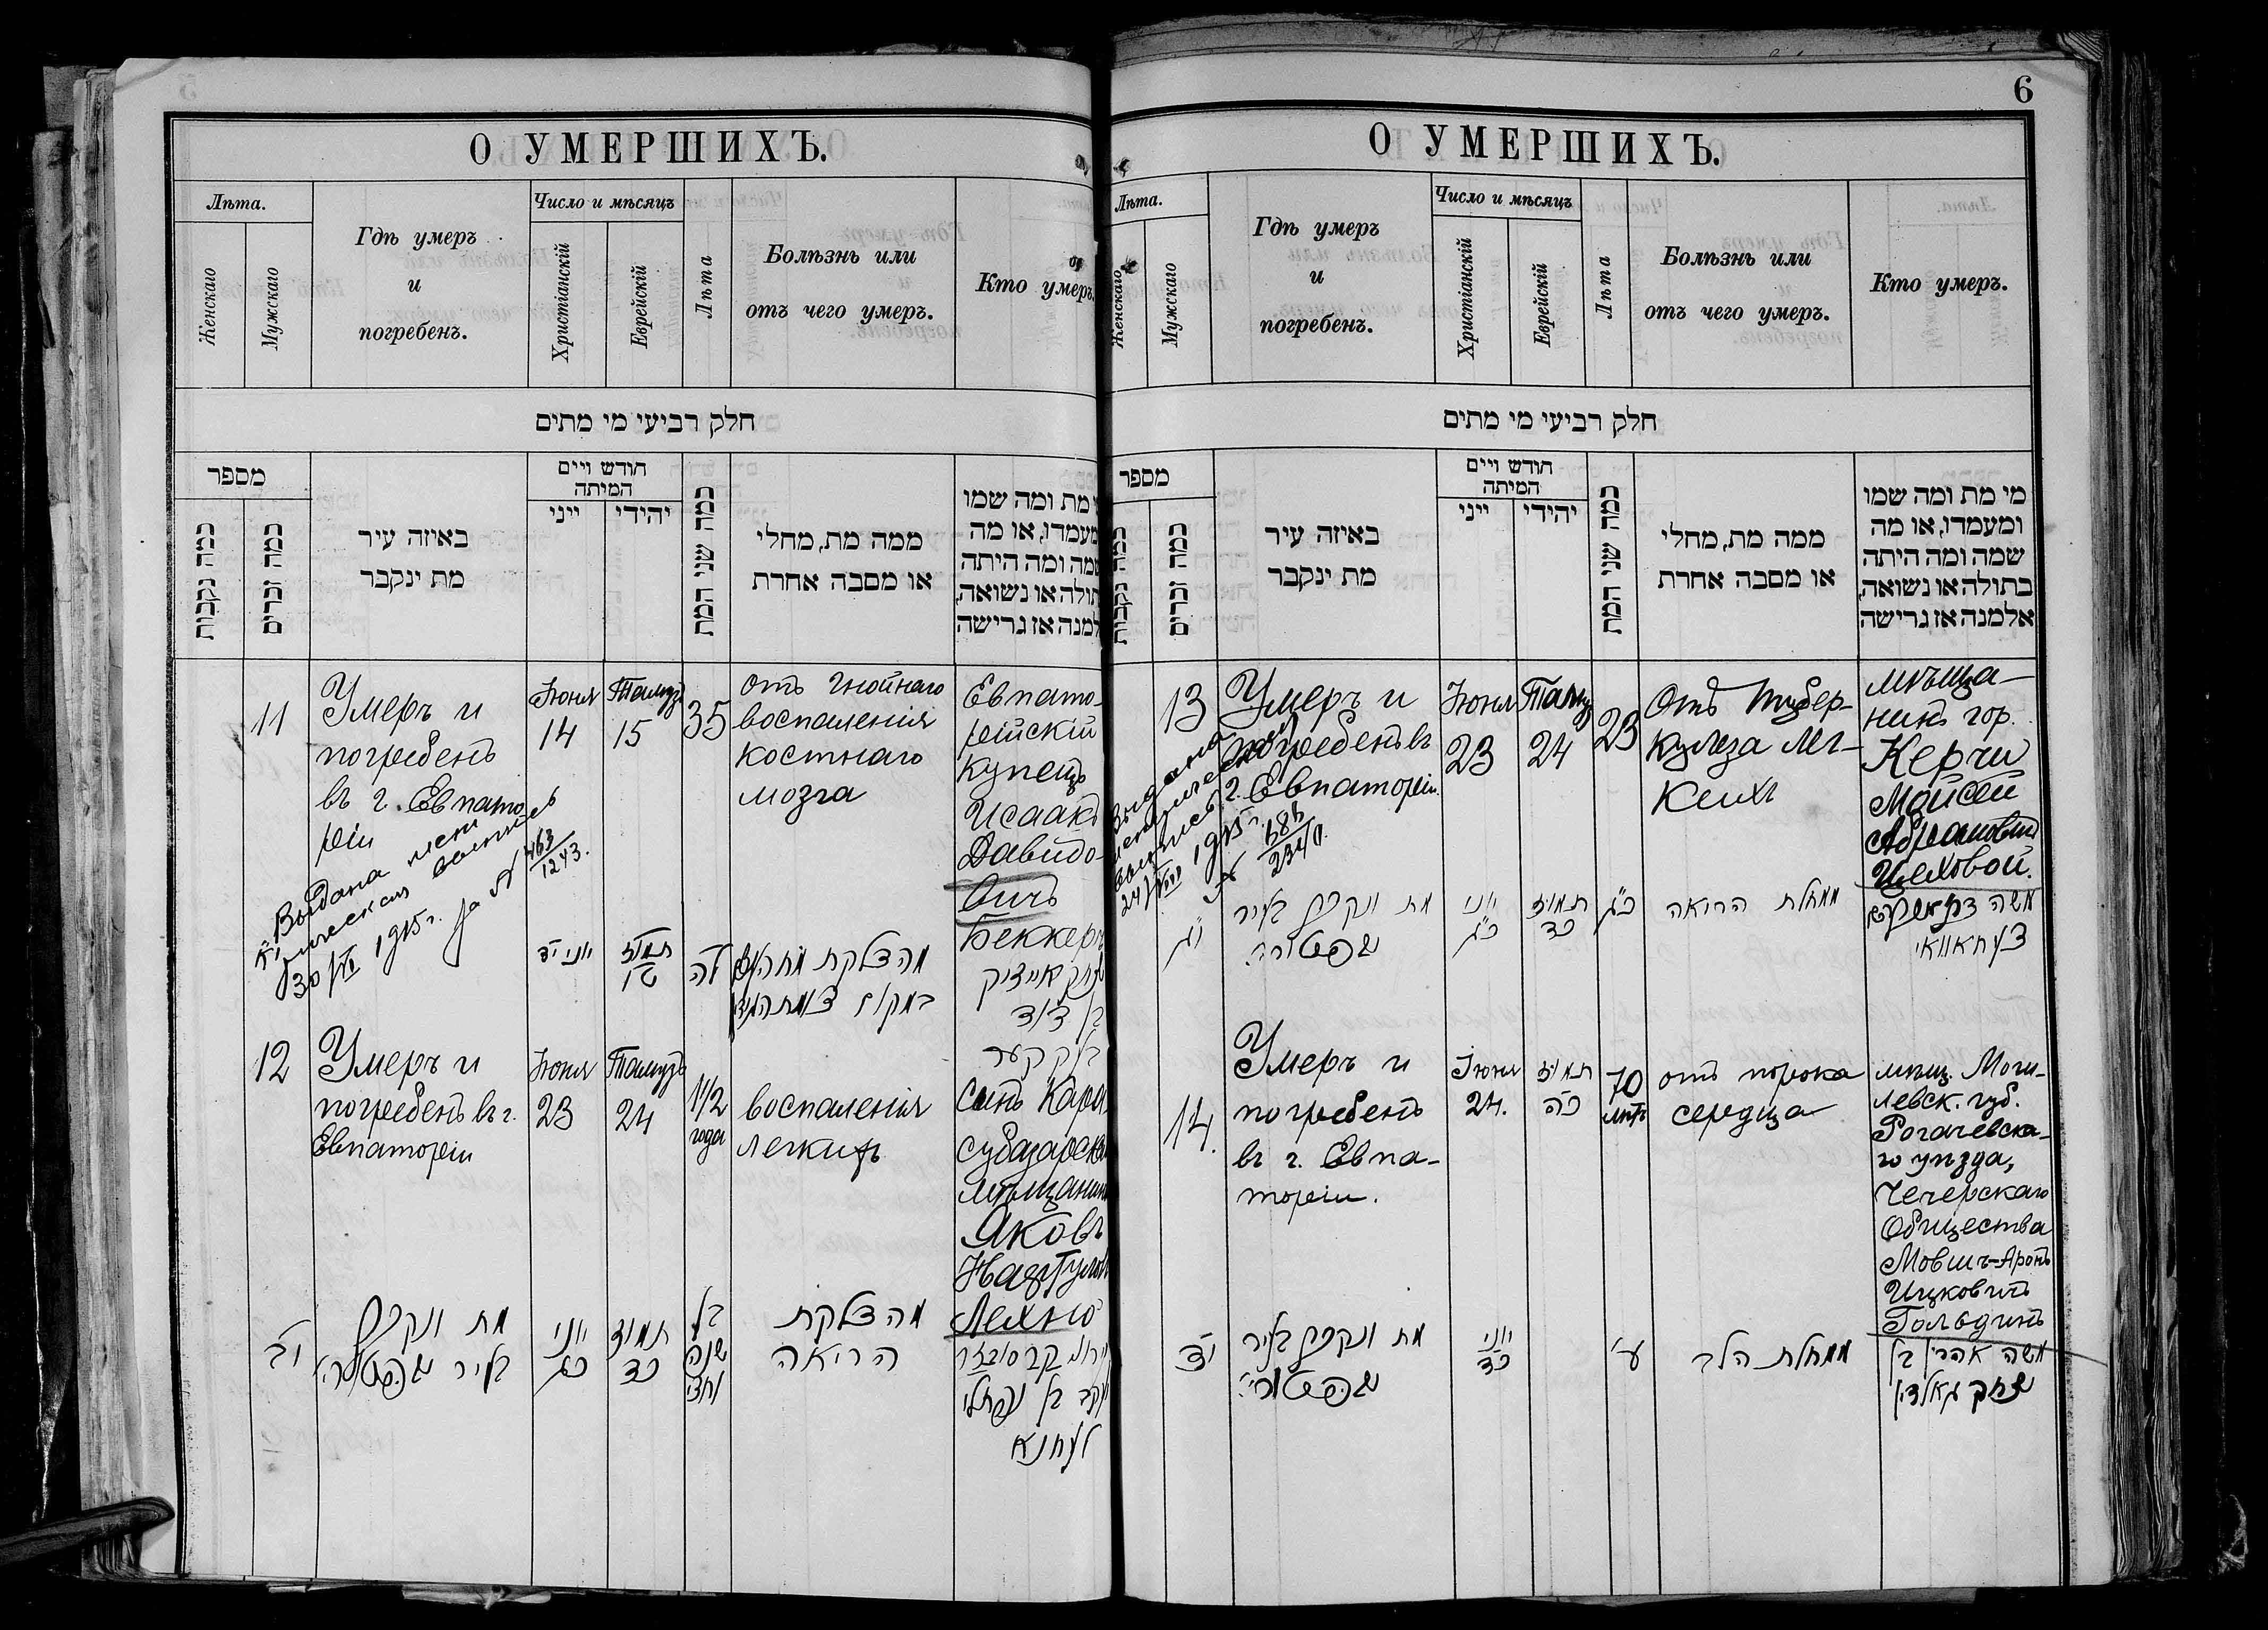 О УМЕРШИХЪ.
Лѣта.
Женскаго
Мужскаго
Гдѣ умеръ
и
погребенъ.
Число и мѣсяцъ
Христіанскій
Еврейскій
Лѣта
Болѣзнь или
отъ чего умеръ.
Кто умеръ.
חלק רביעי מי מתים
מספר
כמה נקבות
כמה זכרים
באיזה עיר
מת ינקבר
חודש ויים
המיתה
ייני
יהידי
כמה שני המת
ממה מת, מחלי
או מסבה אחרת
מת ומה שמו
מעמדו, או מה
שמה ומה היתה
תולה או נשואה,
למנה אז גרישה
11
Умеръ и
погребенъ
въ г. Евпато
ріи
Іюня
14
Тамузъ
15
35
отъ гнойнаго
воспаленія
костнаго
мозга
Евпато-
рійскій
купецъ
Исаакъ
Давидо-
вичъ
Беккеръ
Выдана метрическая выпись
30/VI 1915 г. за № 463/1243.
י״א
יוני י״ד
תמוז
ט״ו
ל״ה
בן דוד
בעקקער
12
Умеръ и
погребенъ въ г.
Евпаторіи
Іюня
23
Тамузъ
24
1 1/2
года
воспаленія
легкихъ
Сынъ Кара
субазарска
мѣщанина
Яковъ
Лехно
י״ב
מת ונקבר
בעיר
יוני
כ״ג
תמוז
כד
בן
שנה
וחצי
מהצלקת
הריאה
יעקב בן נפתלי
לעחנא
6
О УМЕРШИХЪ.
Лѣта.
Женскаго
Мужскаго
Гдѣ умеръ
и
погребенъ.
Число и мѣсяцъ
Христіанскій
Еврейскій
Лѣта
Болѣзнь или
отъ чего умеръ.
Кто умеръ.
חלק רביעי מי מתים
מספר
כמה נקבות
כמה זכרים
באיזה עיר
מת ינקבר
חודש ויים
המיתה
ייני
יהידי
כמה שני המת
ממה מת, מחלי
או מסבה אחרת
מי מת ומה שמו
ומעמדו, או מה
שמה ומה היתה
בתולה או נשואה,
אלמנה אז גרישה
13
Умеръ и
погребенъ въ
г. Евпаторіи.
Іюня
23
Тамуз
24
23
Отъ тубер-
кулеза лег-
кихъ
мѣща-
нинъ гор.
Керчи
Мойсей
Абрамовичъ
Цеховой.
Выдана
метрическая
выпись
24/VIII 1915 г.
י״ג
מת ונקבר בעיר
יוני
כ״ג
תמוז
כד
כ״ג
ממחלת הריאה
14.
Умеръ и
погребенъ
въ г. Евпа-
торіи.
Іюня
24.
תמוז
כ״ה
70
лѣтъ
отъ порока
сердца
мѣщ. Моги-
левск. губ.
Рогачевска-
го уѣзда,
Чечерскаго
Общества
Мовша-Аронъ
Ицковичъ
Гольдинъ
י״ד
מת ונקבר בעיר
יוני
כד
ע׳
ממחלת הלב
משה אהרין בן
יצחק גאלדין